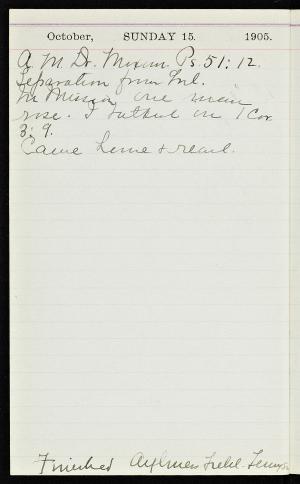 October, SUNDAY 15. 1905.
A M Dr. Moxom Ps. 51:12.
Separation from
In Mission one man
rose. I talked on 1 Cor
3:9.
Came home & read.
Finished Aylmer's Field. Tennyson